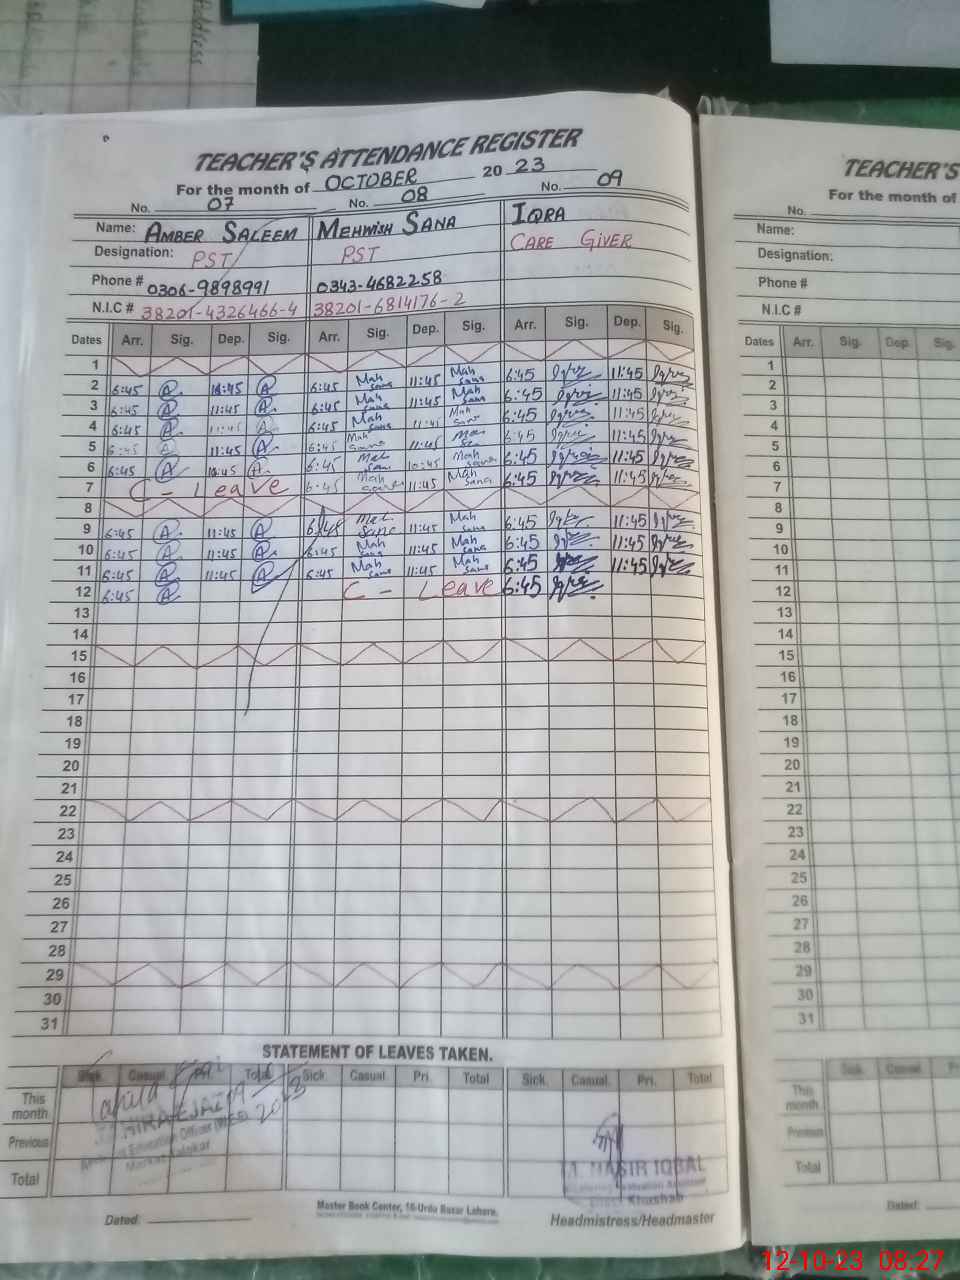 Address
TEACHER'S ATTENDANCE REGISTER
For the month of OCTOBER 20 23
No. 07 No. 08 No. 09
Name: AMBER SALEEM MEHWISH SANA IQRA
Designation: PST PST CARE GIVER
Phone # 0306-9898991 0343-4682258
N.I.C # 38201-4326466-4 38201-6814176-2
Dates Arr. Sig. Dep. Sig. Arr. Sig. Dep. Sig. Arr. Sig. Dep. Sig.
1
2 6:45 A 11:45 A 6:45 Mah Sana 11:45 Mah Sana 6:45 Iqra 11:45 Iqra
3 6:45 A 11:45 A 6:45 Mah Sana 11:45 Mah Sana 6:45 Iqra 11:45 Iqra
4 6:45 A 11:45 A 6:45 Mah Sana 11:45 Mah Sana 6:45 Iqra 11:45 Iqra
5 6:45 A 11:45 A 6:45 Mah Sana 11:45 6:45 Iqra 11:45 Iqra
6 6:45 A 10:45 A 6:45 10:45 Mah Sana 6:45 Iqra 11:45 Iqra
7 C - Leave 6:45 Mah Sana 11:45 Mah Sana 6:45 Iqra 11:45 Iqra
8
9 6:45 A 11:45 A 6:45 Sana 11:45 Mah Sana 6:45 Iqra 11:45 Iqra
10 6:45 A 11:45 A 6:45 Mah Sana 11:45 Mah Sana 6:45 Iqra 11:45 Iqra
11 6:45 A 11:45 A 6:45 Mah Sana 11:45 Mah Sana 6:45 Iqra 11:45 Iqra
12 6:45 A C - Leave 6:45 Iqra
13
14
15
16
17
18
19
20
21
22
23
24
25
26
27
28
29
30
31
STATEMENT OF LEAVES TAKEN.
Sick. Casual. Pri. Total Sick. Casual. Pri. Total Sick. Casual. Pri. Total
This month
Previous
Total
2023
M. NASIR IQBAL
Khushab
Dated:
Master Book Center, 16-Urdu Bazar Lahore.
Headmistress/Headmaster
TEACHER'S
For the month of
No.
Name:
Designation:
Phone #
N.I.C #
Dates Arr. Sig. Dep. Sig.
1
2
3
4
5
6
7
8
9
10
11
12
13
14
15
16
17
18
19
20
21
22
23
24
25
26
27
28
29
30
31
Sick. Casual
This month
Previous
Total
Dated:
12-10-23 08:27